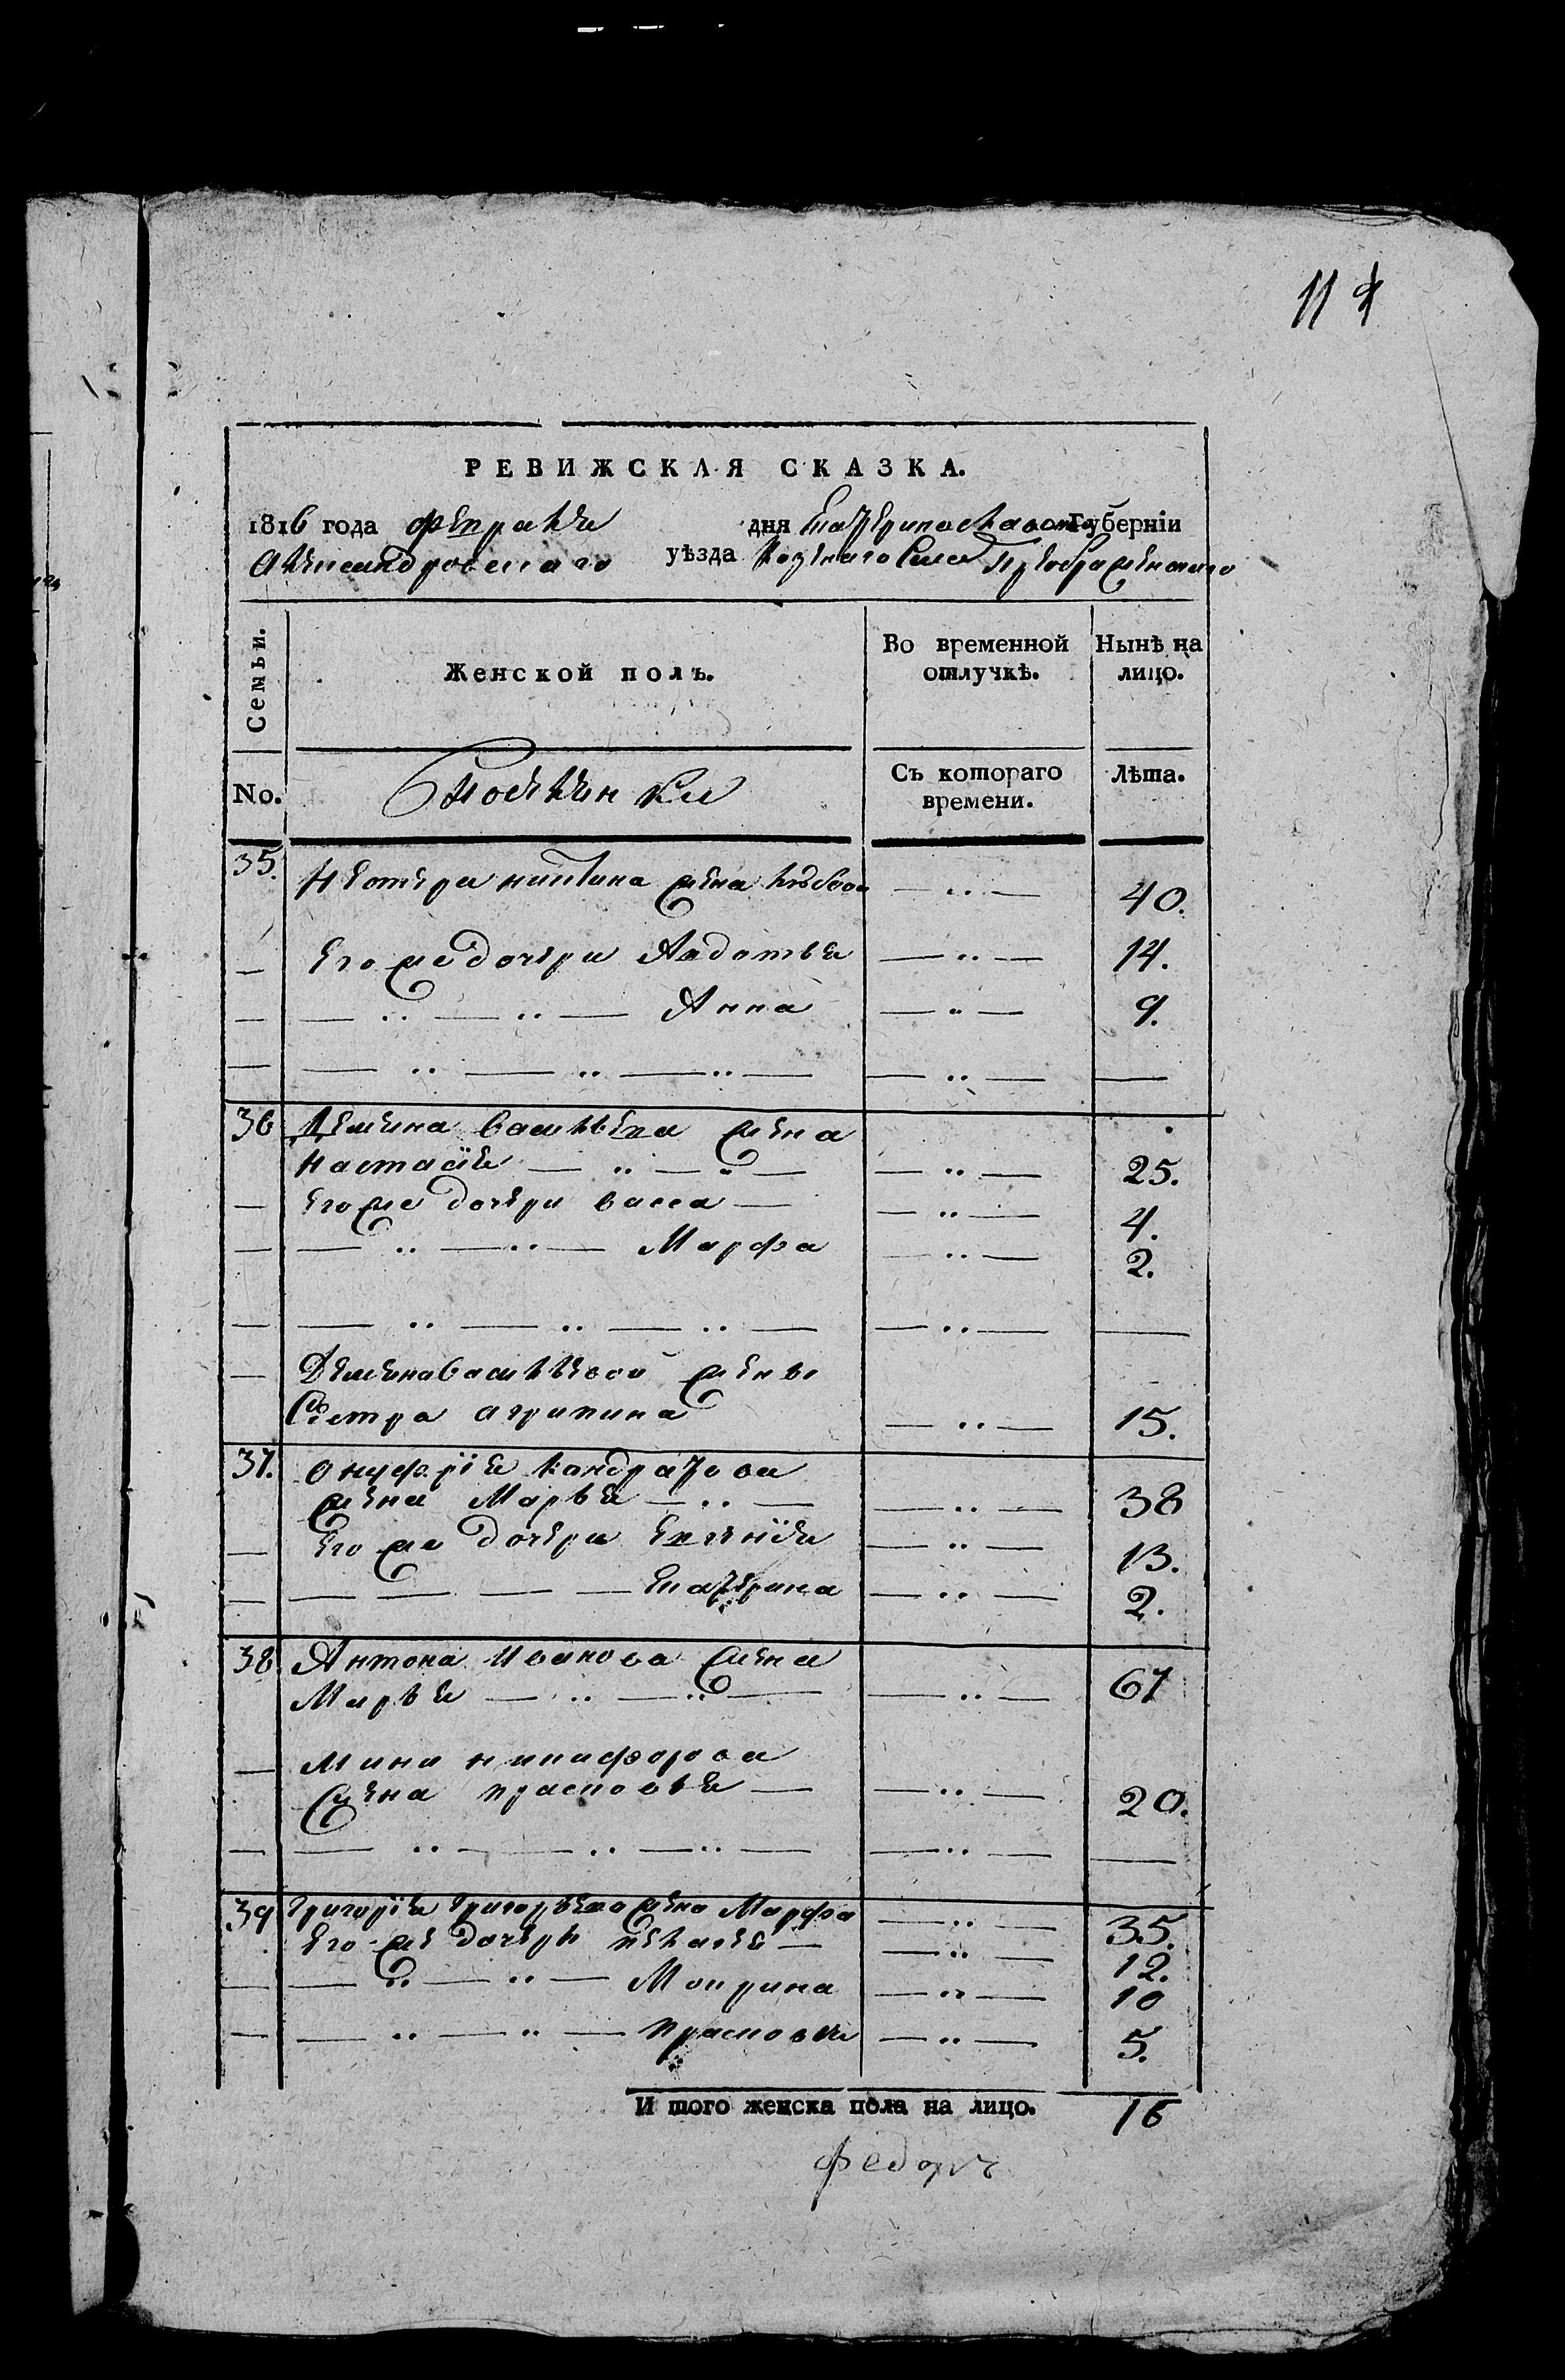 РЕВИЖСКАЯ СКАЗКА.
1816 года февраля дня Екатеринославской Губерніи
Александровскаго уѣзда Казенаго Села Преображенскаго
Семьи.
Женской полъ.
Во временной отлучкѣ.
Нынѣ на лицо.
No.
Съ котораго времени.
Лѣта.
35. никитина жена 40.
Его же дочери Авдотья — „ — 14.
— „ — „ — Анна — „ — 9.
— „ — „ — „ — — „ — —
36 Демена васильева жена
настасія — „ — „ — — „ — 25.
— Егоже дочери васса — — „ — 4.
— — „ — „ — Марфа — „ — 2.
— — „ — „ — „ — — „ — —
— Деменавасильевой жены
Сестра агрипина — „ — 15.
37. онуфрія кондратова
жена Марья — „ — — „ — 38
— Его же дочери Евгенія — „ — 13.
— — — — — Екатерина — „ — 2.
38. Антона Иванова жена
Марья — „ — „ — — „ — 67
— Мины никифорова
жена прасковья — — „ — 20.
— — „ — „ — „ — — „ — —
39 Григорія Григорьева жена Марфа — „ — 35.
Его же дочери пелагея — — „ — 12.
— — „ — „ — Мокрина — „ — 10
— — „ — „ — прасковия — „ — 5.
И того женска пола на лицо. 16
Федоръ